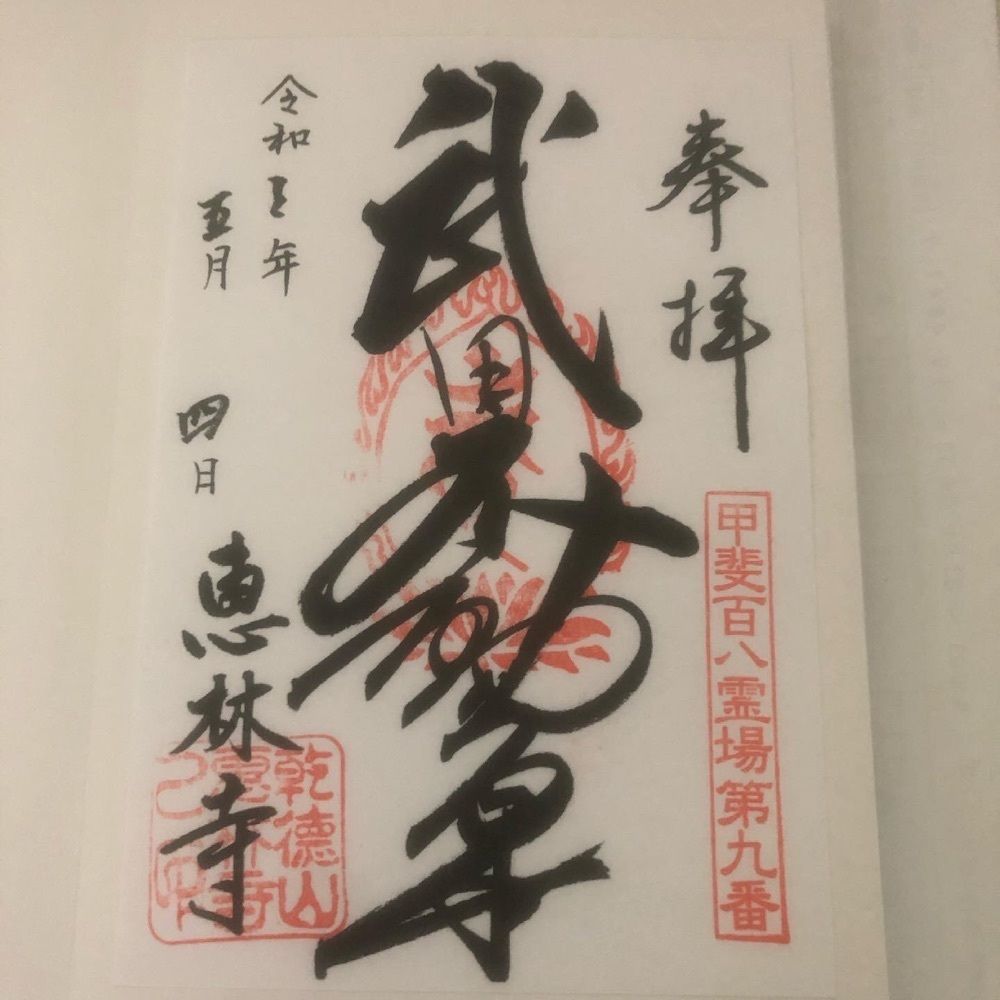 奉拝
甲斐百八霊場第九番
武田不動尊
令和三年
五月四日
恵林寺
乾徳山
恵林寺
之印